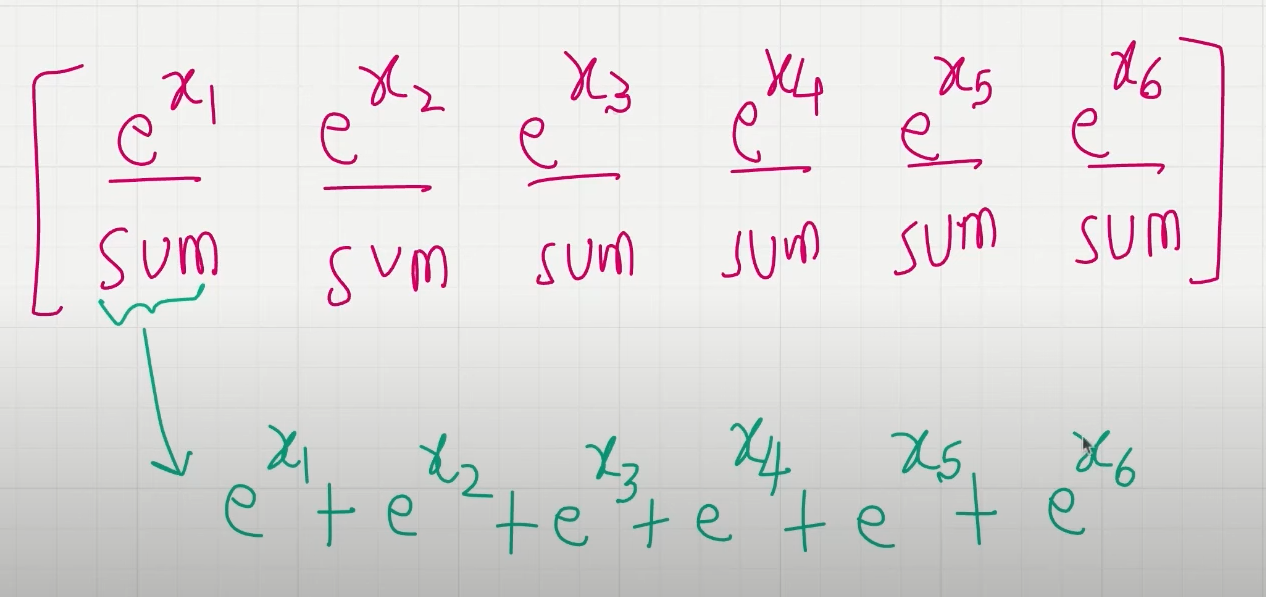 [ e^x₁/sum e^x₂/sum e^x₃/sum e^x₄/sum e^x₅/sum e^x₆/sum ]
e^x₁ + e^x₂ + e^x₃ + e^x₄ + e^x₅ + e^x₆